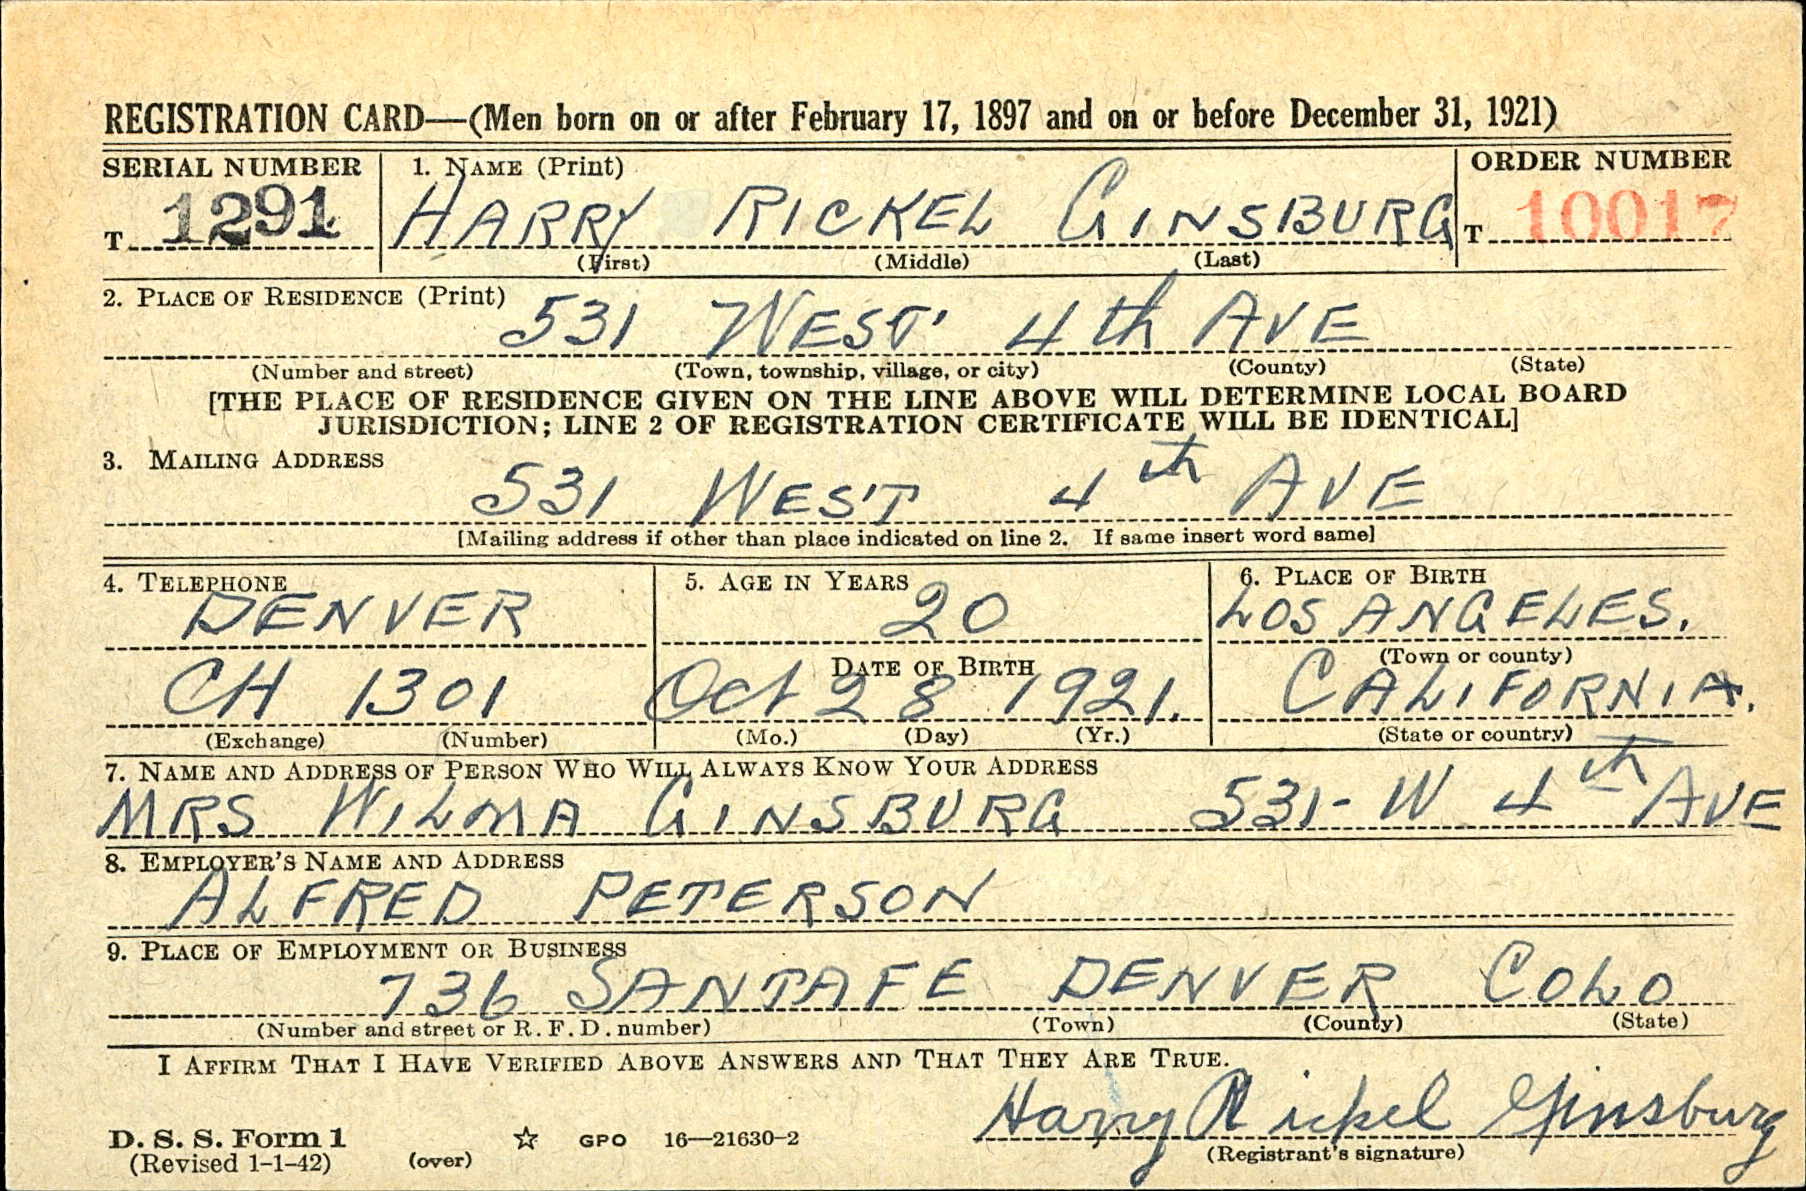 REGISTRATION CARD—(Men born on or after February 17, 1897 and on or before December 31, 1921)
SERIAL NUMBER 1. NAME (Print) ORDER NUMBER
T 1291 HARRY RICKEL GINSBURG T 10017
(First) (Middle) (Last)
2. PLACE OF RESIDENCE (Print)
531 WEST 4th AVE
(Number and street) (Town, township, village, or city) (County) (State)
[THE PLACE OF RESIDENCE GIVEN ON THE LINE ABOVE WILL DETERMINE LOCAL BOARD
JURISDICTION; LINE 2 OF REGISTRATION CERTIFICATE WILL BE IDENTICAL]
3. MAILING ADDRESS
531 WEST 4th AVE
[Mailing address if other than place indicated on line 2. If same insert word same]
4. TELEPHONE 5. AGE IN YEARS 6. PLACE OF BIRTH
DENVER 20 LOS ANGELES.
DATE OF BIRTH (Town or county)
CH 1301 Oct 28 1921. CALIFORNIA.
(Exchange) (Number) (Mo.) (Day) (Yr.) (State or country)
7. NAME AND ADDRESS OF PERSON WHO WILL ALWAYS KNOW YOUR ADDRESS
MRS WILMA GINSBURG 531- W 4th AVE
8. EMPLOYER'S NAME AND ADDRESS
ALFRED PETERSON
9. PLACE OF EMPLOYMENT OR BUSINESS
736 SANTAFE DENVER COLO
(Number and street or R. F. D. number) (Town) (County) (State)
I AFFIRM THAT I HAVE VERIFIED ABOVE ANSWERS AND THAT THEY ARE TRUE.
Harry Rickel Ginsburg
D. S. S. Form 1 ☆ GPO 16—21630-2
(Revised 1-1-42) (over) (Registrant's signature)